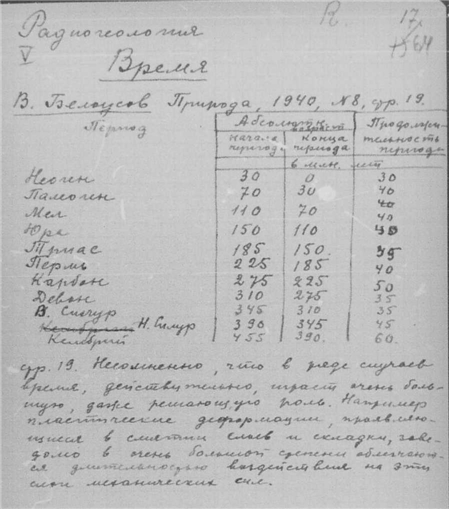 Радиогеология
R. 17
V
1564
Время
В. Белоусов Природа, 1940, №8, стр. 19.
Период Абсолютн. возраст Продолжи-
начала конца тельность
периода периода периода
в млн. лет
Неоген 30 0 30
Палеоген 70 30 40
Мел 110 70 40
40
Юра 150 110
Триас 185 150 35
Пермь 225 185 40
Карбон 275 225 50
Девон 310 275 35
В. Силур 345 310 35
Кембрий Н. Силур 390 345 45
Кембрий 455 390. 60.
стр. 19. Несомненно, что в ряде случаев
время, действительно, играет очень боль-
шую, даже решающую роль. Например
пластические деформации, проявляю-
щиеся в смятии слоев и складки, заве-
домо в очень большой степени облегчаю-
ся длительностью воздействия на эти
слои механических сил.